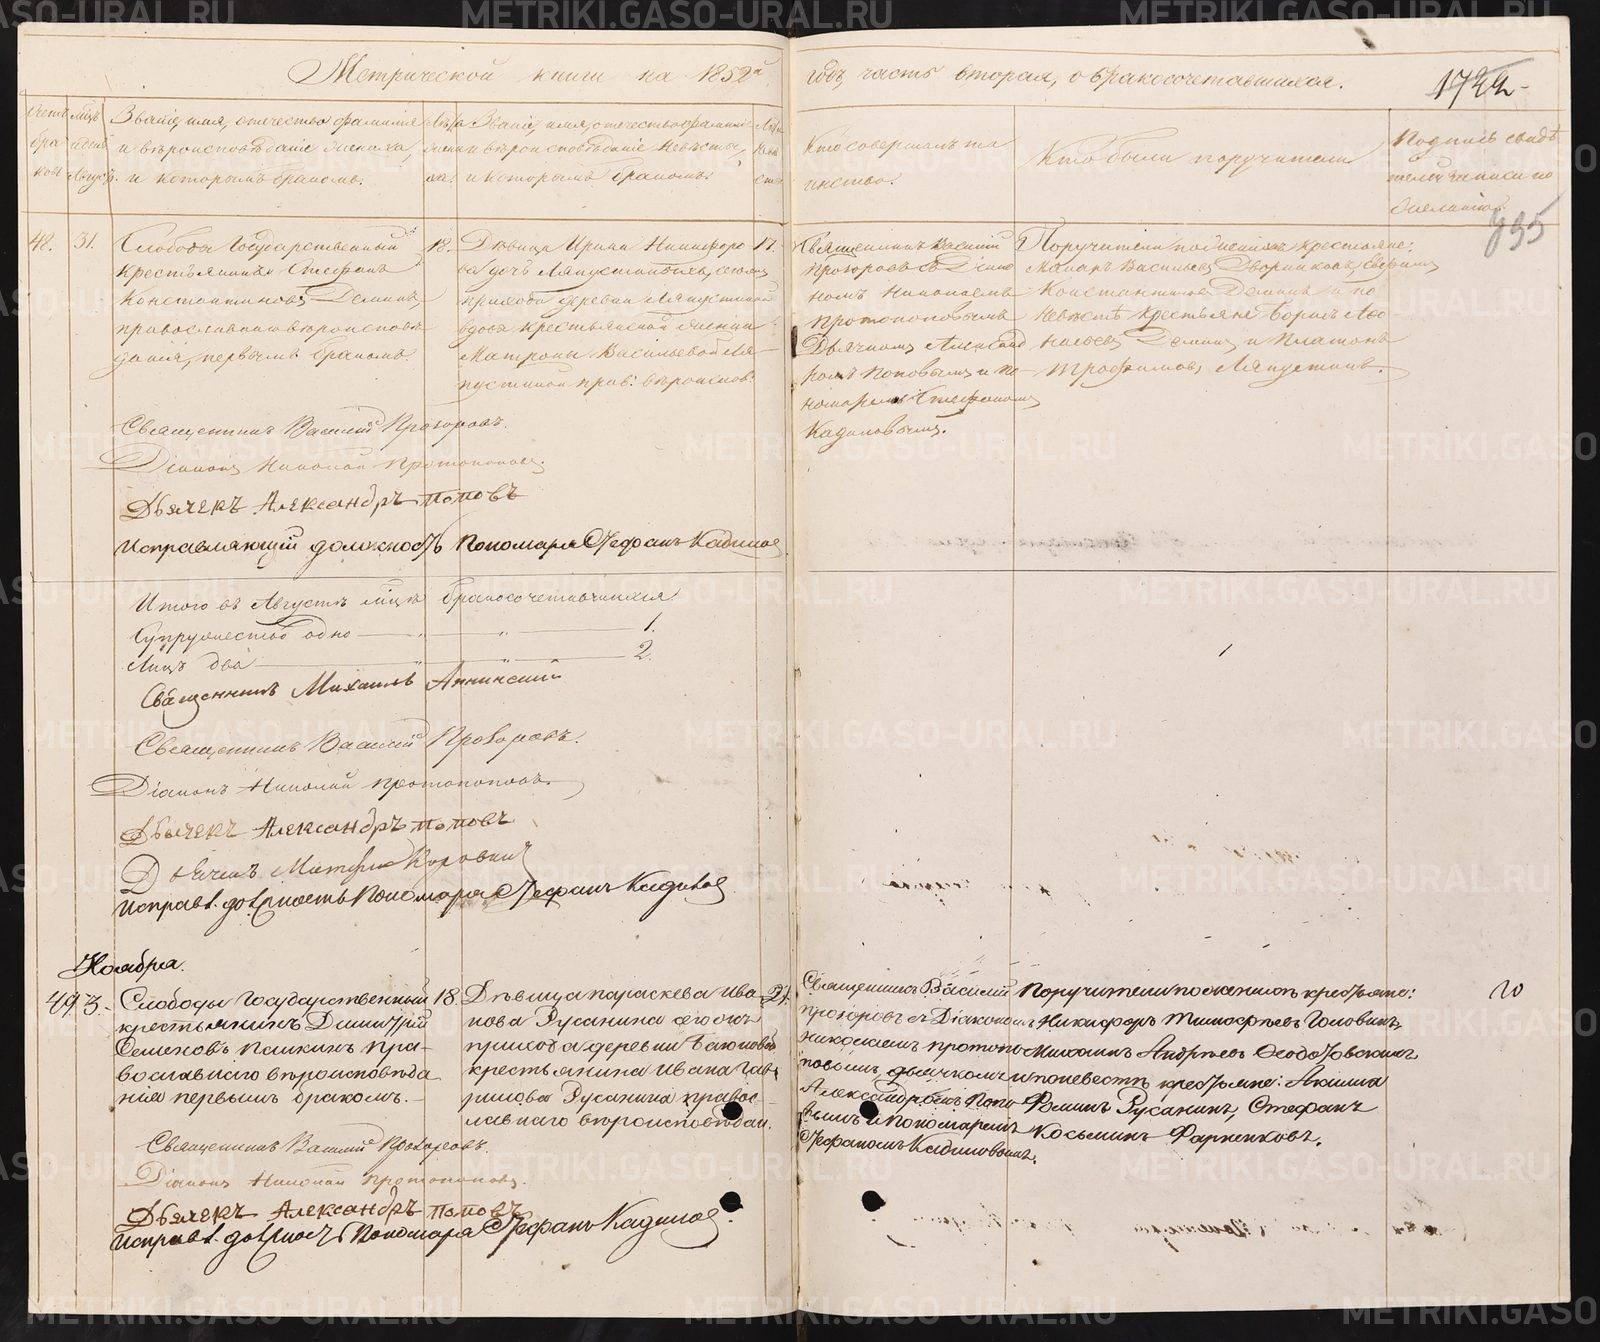 Метрической книги на 1852й
годъ, часть вторая, о бракосочетавшихся.
1722
795
Счетъ браковъ
Мцъ и день
Августъ.
Званіе, имя, отечество фамилія
и вѣроисповѣданіе жениха,
и которымъ бракомъ.
Званіе, имя, отечество фамилія
и вѣроисповѣданіе невѣсты,
и которымъ бракомъ.
Кто совершалъ та
инство.
Кто были поручители
Подпись свидѣ
телей записи по
желанію.
48.
31.
Слободы Государственный
крестьянинъ Стефанъ
Константиновъ Деминъ,
православнаго вѣроисповѣ
данія, первымъ бракомъ.
18.
Дѣвица Ирина Никифоро
ва дочь Ляпустиныхъ, сегожъ
прихода деревни Ляпустиной
вдовы крестьянской жены
Матроны Васильевой Ля-
пустиной прав: вѣроиспов:
17.
Священникъ Василій
Прозоровъ съ Діако
номъ Николаемъ
Протопоповымъ
Дьячкомъ Александ
ромъ Поповымъ и по
номаремъ Стефаномъ
Кадиловымъ.
Поручители по женихѣ крестьяне:
Макаръ Васильевъ Дворниковъ,
Константиновъ Деминъ и по
невѣстѣ крестьяне Борисъ
Деминъ и Платонъ
Трофимовъ Ляпустинъ.
Священникъ Василій Прозоровъ.
Діаконъ Николай Протопоповъ.
Дьячекъ Александръ Поповъ
Исправляющій должность Пономаря Стефанъ Кадиловъ
Итого въ Августѣ мцѣ бракосочетавшихся
Супружество одно 1.
Лицъ два 2.
Священникъ Михаилъ Аннинскій
Священникъ Василій Прозоровъ.
Діаконъ Николай Протопоповъ.
Дьячекъ Александръ Поповъ
Дьячекъ
Исправл. должность Пономаря Стефанъ Кадиловъ
Ноября.
49.
3.
Слободы Государственный
крестьянинъ Димитрій
Семеновъ Пашкинъ пра-
вославнаго вѣроисповѣда
ния первымъ бракомъ.
18.
Дѣвица Параскева Ива-
нова Русанина сегожъ
прихода деревни
крестьянина Ивана Гав
рилова Русанина правос-
лавнаго вѣроисповѣдан.
21.
Священникъ Василій
Прозоровъ съ Діакономъ
Николаемъ Протопо
повымъ, дьячкомъ
Александромъ Попо
вымъ и Пономаремъ
Стефаномъ Кадиловымъ.
Поручители по женихѣ крестьяне:
Никифоръ Тимофѣевъ Головинъ,
Михаилъ Андрѣевъ
и по невестѣ крестьяне: Акима
Фоминъ Русанинъ, Стефанъ
Косьминъ
Священникъ Василій Прозоровъ.
Діаконъ Николай Протопоповъ.
Дьячекъ Александръ Поповъ
Исправл. должность Пономаря Стефанъ Кадиловъ.
METRIKI.GASO-URAL.RU